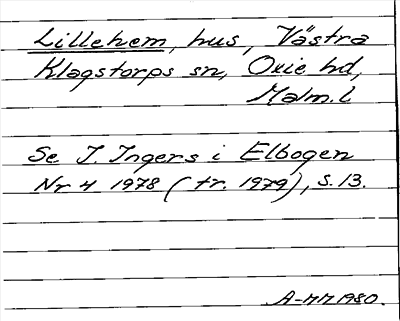 Lillehem, hus, Västra
Klagstorps sn, Oxie hd,
Malm.l
Se I Ingers i Elbogen
Nr 4 1978 (tr. 1979), s. 13.
1980.